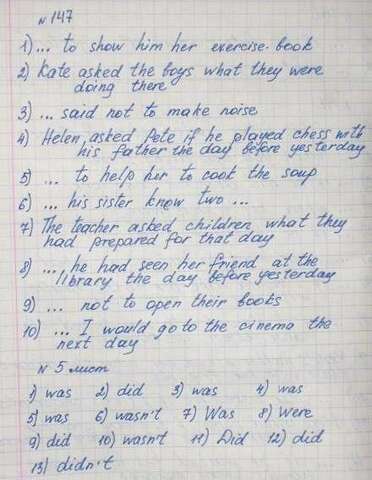 №147
1) ... to show him her exercise-book
2) Kate asked the boys what they were
doing there
3) ... said not to make noise
4) Helen asked Pete if he played chess with
his father the day before yesterday
5) ... to help her to cook the soup
6) ... his sister know two ...
7) The teacher asked children what they
had prepared for that day
8) ... he had seen her friend at the
library the day before yesterday
9) ... not to open their books
10) ... I would go to the cinema the
next day
№5 лист
1) was 2) did 3) was 4) was
5) was 6) wasn't 7) Was 8) Were
9) did 10) wasn't 11) Did 12) did
13) didn't